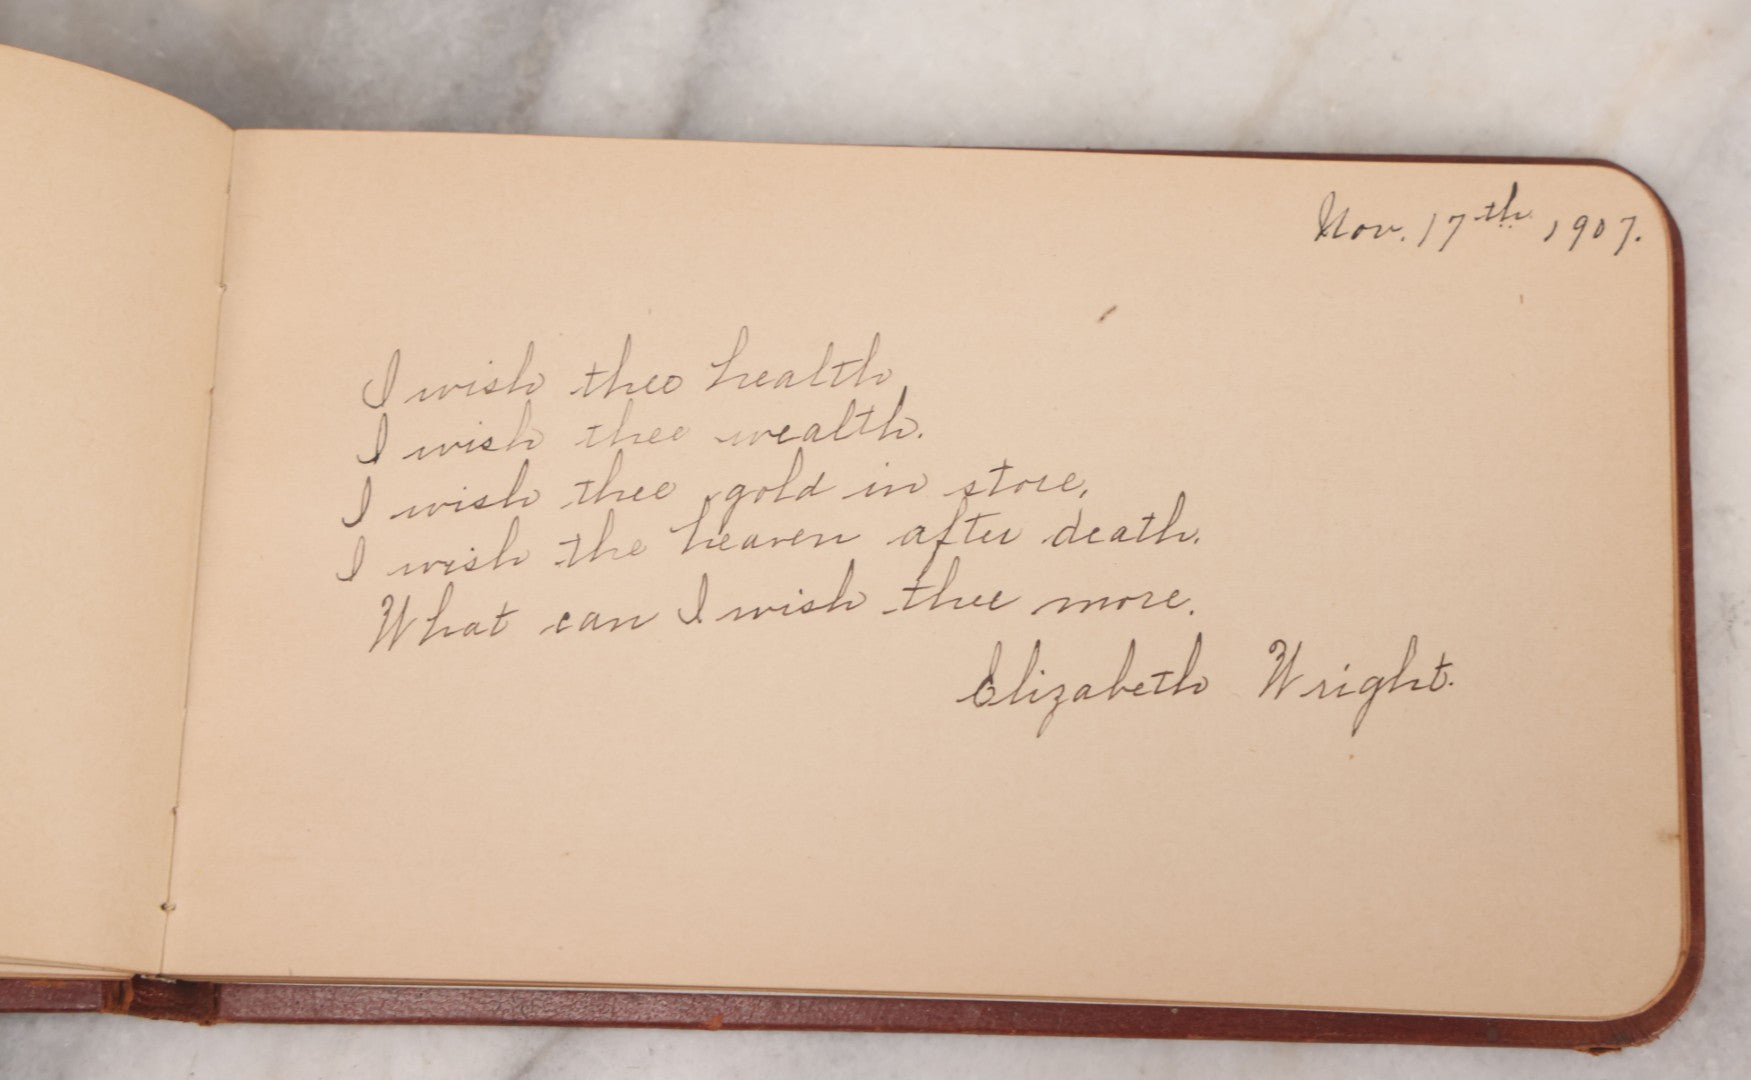 Nov. 17th 1907.
I wish thee health
I wish thee wealth.
I wish thee gold in store,
I wish the heaven after death.
What can I wish thee more.
Elizabeth Wright.